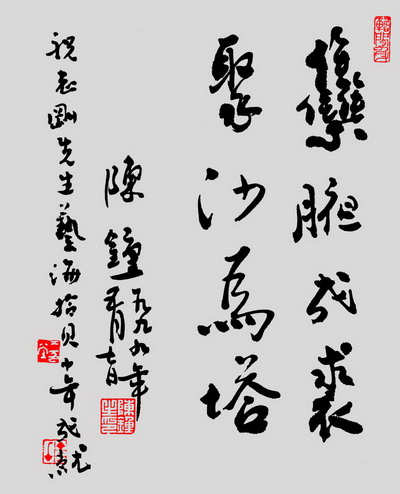 雧腋成裘
聚沙為塔
陳鐘
一九九九年
祝志剛先生藝海拾貝十年成就